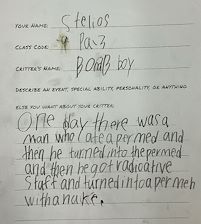 YOUR NAME: Stelios
CLASS CODE: Pa-3
CRITTER'S NAME: BOMB boy
DESCRIBE AN EVENT, SPECIAL ABILITY, PERSONALITY, OR ANYTHING
ELSE YOU WANT ABOUT YOUR CRITTER:
One day there was a
man who ate a permed and
then he turned into the permed
and then he got radioative
staff and turned into a permeh
with a nuke.